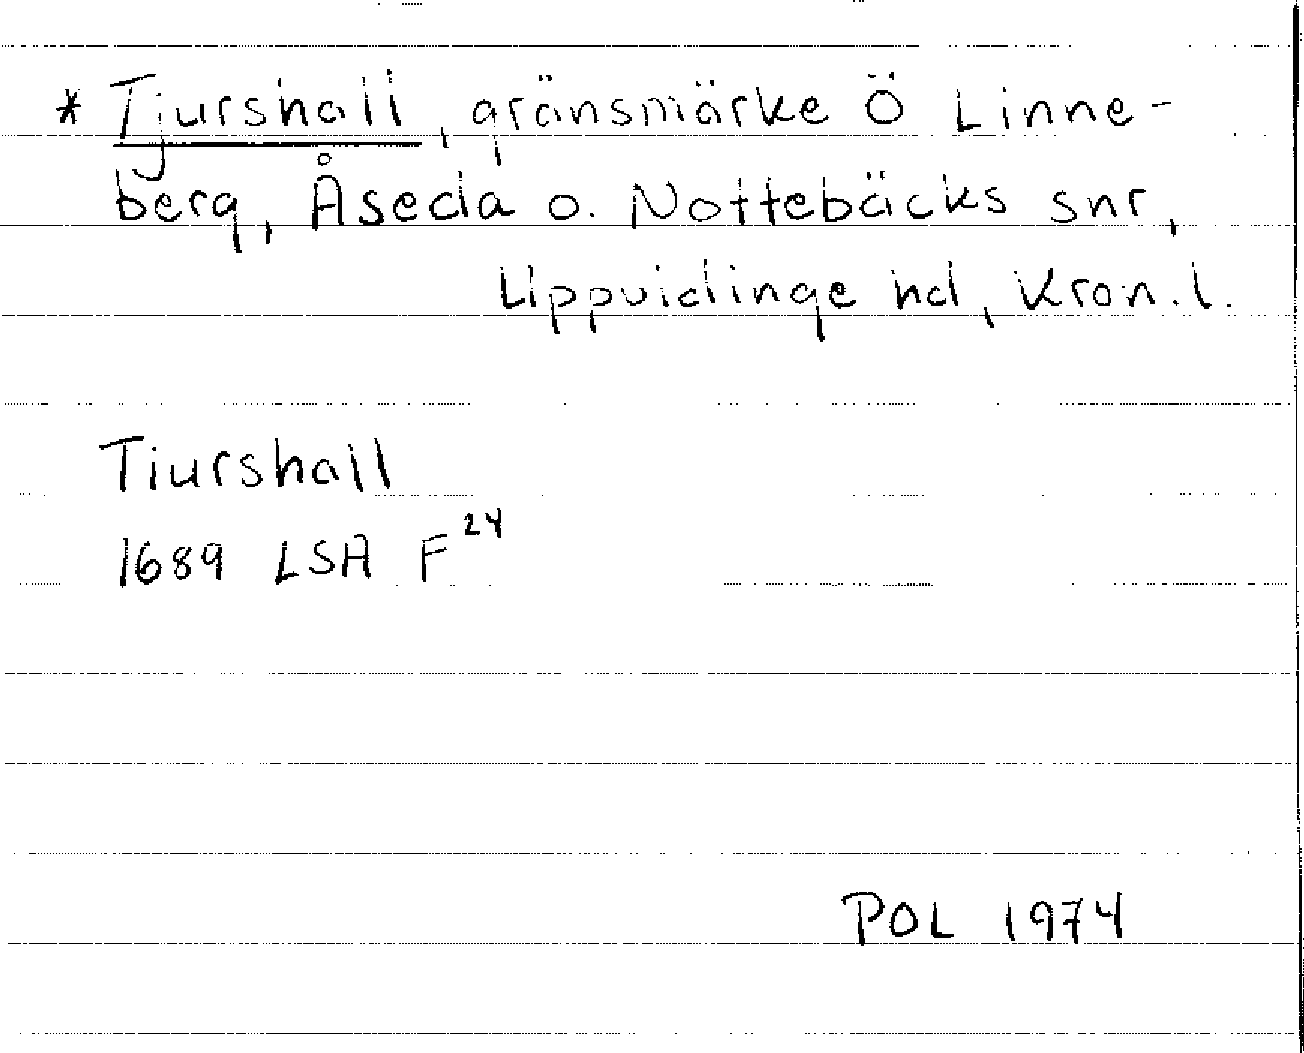 * Tjurshall, gränsmärke Ö Linne-
berg, Åseda o. Nottebäcks snr,
Uppvidinge hd, Kron. l.
Tiurshall
1689 LSA F²⁴
POL 1974